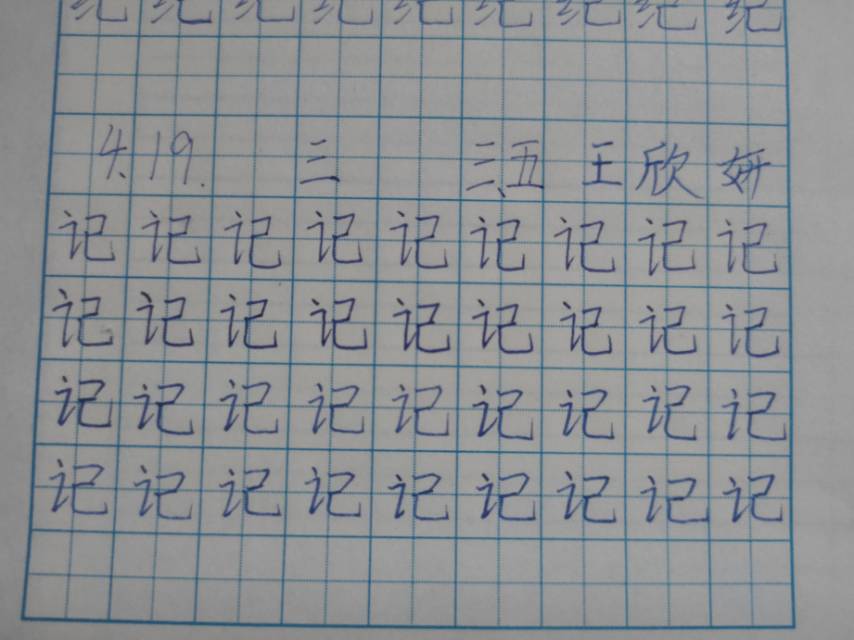 纪纪纪纪纪纪纪纪纪
4.19. 三 三、五 王欣妍
记记记记记记记记记
记记记记记记记记记
记记记记记记记记记
记记记记记记记记记